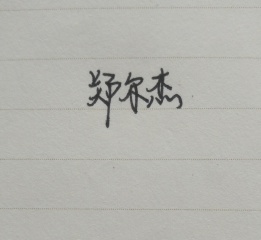 郑尔杰